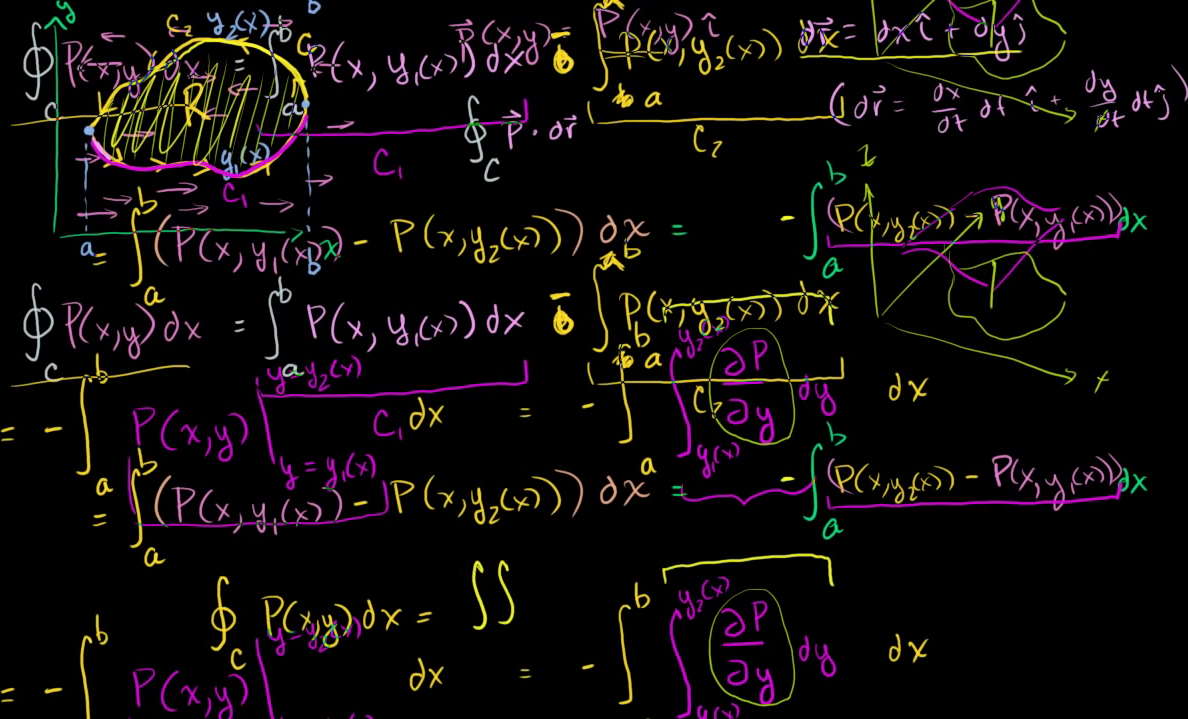 y C₂ y₂(x) b
∮_C P(x,y) dx = ∫_a^b P(x, y₁(x)) dx − ∫_a^b P(x, y₂(x)) dx
P⃗(x,y) = P(x,y) î
dr⃗ = dx î + dy ĵ
R a
C₁ ∮_C P⃗ · dr⃗ C₂ (dr⃗ = dx/dt dt î + dy/dt dt ĵ)
y₁(x)
C₁
a b x
= ∫_a^b (P(x, y₁(x)) − P(x, y₂(x))) dx = − ∫_a^b (P(x, y₂(x)) − P(x, y₁(x))) dx
∮_C P(x,y) dx = ∫_a^b P(x, y₁(x)) dx − ∫_a^b P(x, y₂(x)) dx
C₁ C₂ x
= − ∫_a^b P(x,y) |_{y = y₁(x)}^{y = y₂(x)} dx = − ∫_a^b ∫_{y₁(x)}^{y₂(x)} ∂P/∂y dy dx
= ∫_a^b (P(x, y₁(x)) − P(x, y₂(x))) dx = − ∫_a^b (P(x, y₂(x)) − P(x, y₁(x))) dx
∮_C P(x,y) dx = ∬
= − ∫^b P(x,y) |^{y = y₂(x)} dx = − ∫^b ∫_{y₁(x)}^{y₂(x)} ∂P/∂y dy dx